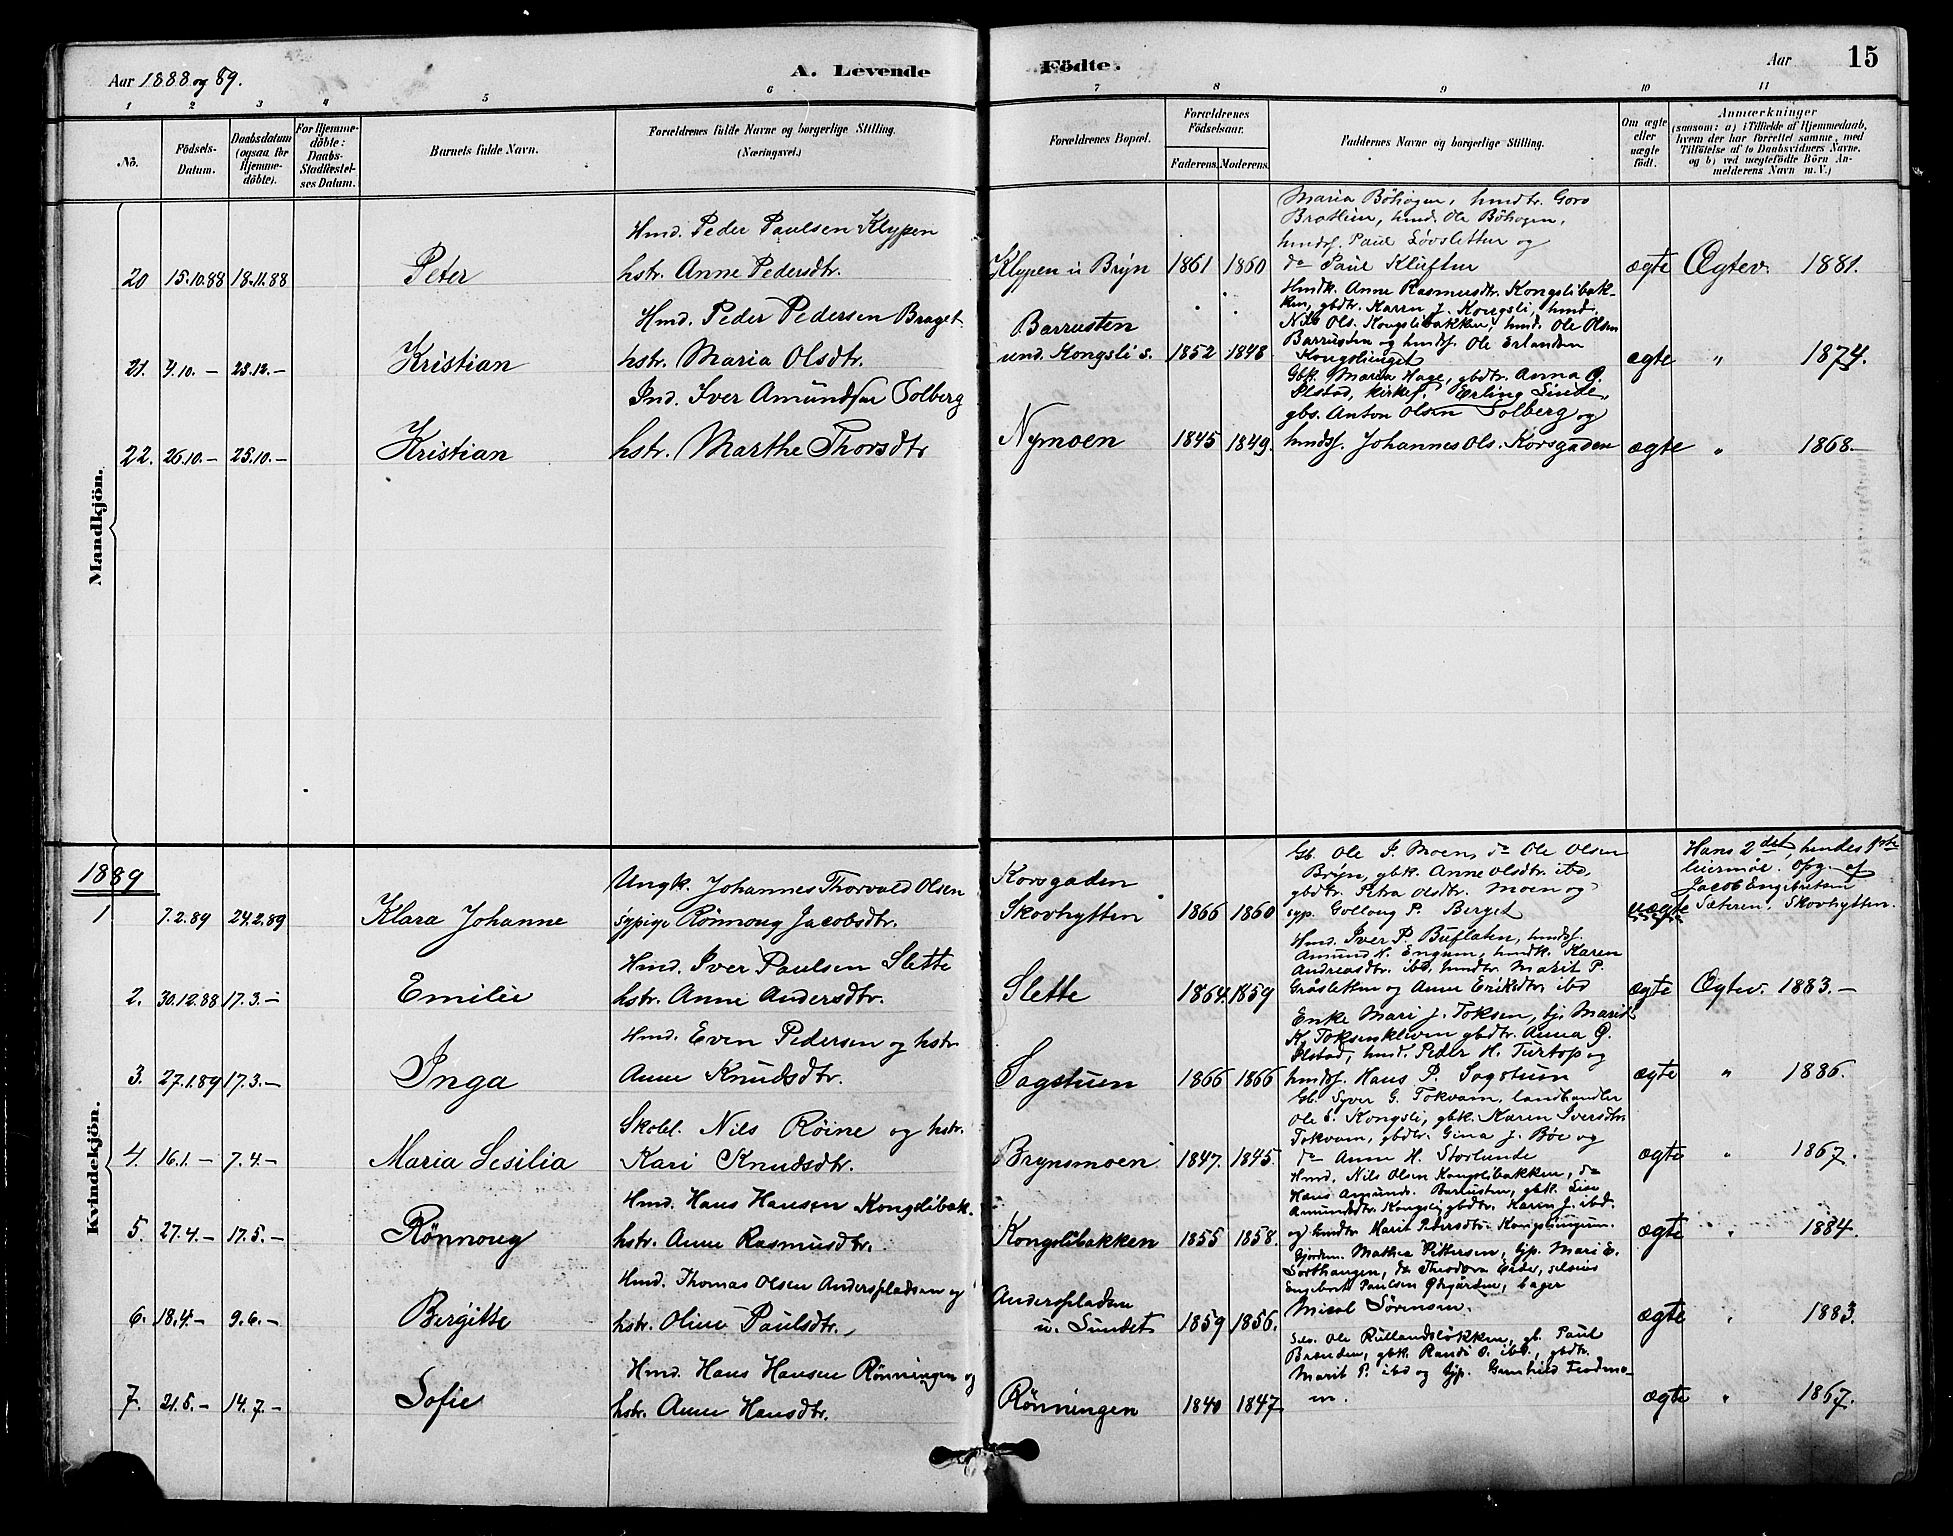 Aar 1888 og 89.
A. Levende Födte.
Aar 15
1 2 3 4 5 6 7 8 9 10 11
No.
Födsels-
Datum.
Daabsdatum
(ogsaa for
Hjemme-
döbte).
For Hjemme-
döbte:
Daabs-
Stadfæstel-
ses Datum.
Barnets fulde Navn.
Forældrenes fulde Navne og borgerlige Stilling.
(Næringsvei.)
Forældrenes Bopæl.
Forældrenes
Födselsaar.
Faderens. Moderens.
Faddernes Navne og borgerlige Stilling.
Om ægte
eller
uægte
födt.
Anmærkninger
(saasom: a) i Tilfælde af Hjemmedaab,
hvem der har forrettet samme, med
Tilföielse af to Daabsvidners Navne,
og b) ved uægtefödte Börn An-
melderens Navn m.V.)
Mandkjön.
20 15.10.88 18.11.88 Peter
Hmd. Peder Paulsen Klypen
hstr. Anne Pedersdtr.
Klypen u Bryn 1861 1860
Maria Böhogen, hmdtr. Goro
Bratlien, hmd. Ole Böhogen,
hmdsf. Paul Lövslettun og
do Paul Kluften
ægte Ægtev. 1881.
21. 9.10. — 23.12. — Kristian
Hmd. Peder Pedersen Braget
hstr. Maria Olsdtr.
Barrusten
und. Kongsli s. 1852 1848
Hmdk. Anne Rasmusdtr. Kongslibak-
ken, gbdtr. Karen J. Kongsli, hmd.
Nils Ols. Kongslibakken, hmd. Ole Olsen
Barrusten og hmdsf. Ole Erlandsen
Kongsliunget
ægte " 1874.
22. 26.10. — 25.10. — Kristian
Ind. Iver Amundsen Solberg
hstr. Marthe Thorsdtr
Nymoen 1845 1849.
Gbk. Maria Hage, gbdtr. Anna O.
Ilstad, kirkes. Erling Linde,
gbs. Anton Olsen Solberg og
hmdsf. Johannes Ols. Korsgaden
ægte " 1868.—
Kvindekjön.
1889
1 7.2.89 24.2.89 Klara Johanne
Ungk. Johannes Thorvald Olsen
sypige Rönnoug Jacobsdtr.
Korsgaden
Skovhytten 1866 1860
Gb. Ole I. Moen, do Ole Olsen
Bryn, gbk. Anne Olsdtr. ibd,
gbdtr. Petra Olsdtr. Moen og
syp. Gollaug P. Berget
uægte
Hans 2det, hendes 1ste
leiermöl. Opg. af
Jacob Engebretsen
Sæteren, Skovhytten.
2. 30.12.88 17.3.— Emilie
Hmd. Iver Paulsen Slette
hstr. Anne Andersdtr.
Slette 1864. 1859
Hmd. Iver P. Buflaten, hmdsf.
Amund H. Engum, hmdk. Karen
Andreasdtr. ibd, hmdtr. Marit P.
Gråsletten og Anne Eriksdtr. ibd
ægte Ægtev. 1883.—
3. 27.1.89 17.3.— Inga
Hmd. Even Pedersen og hstr.
Anne Knudsdtr.
Sagstuen 1866 1866
Enke Mari J. Toksen, tj. Marit
K. Toksenkleven gbdtr. Anna O.
Ilstad, hmd. Peder H. Turtop og
hmdsf. Hans P. Sagstuen
ægte " 1886.
4. 16.1. — 7.4.— Maria Sesilia
Skolel. Nils Röine og hstr.
Kari Knudsdtr.
Brynsmoen 1847. 1845.
Gb. Syver G. Tokvam, landhandler
Ole C. Kongsli, gbk. Karen Iversdtr.
Tokvam, gbdtr. Gina J. Böe og
do Anne H. Storlunde
ægte " 1867.
5. 27.4.— 17.5.— Rönnoug
Hmd. Hans Hansen Kongslibak.
hstr. Anne Rasmusdtr.
Kongslibakken 1855 1858.
Hmd. Nils Olsen Kongslibakken, do
Hans Amunds. Barrusten, gbk. Lise
Amundsdtr. Kongsli gbdtr. Karen J. ibd.
og hmdtr. Marit Pedersdtr. Kongsliungum.
ægte " 1884.
6. 18.4.— 9.6.— Bergitte
Hmd. Thomas Olsen Anderspladsen og
hstr. Oline Paulsdtr.
Anderspladsen
u. Sundet 1859 1856.
Gjordem. Mathea Pettersen, tjp. Mari E.
Sorthaugen, do Theodora
Engebret Paulsen bager
Sörensen.
ægte " 1883.
7. 21.5.— 14.7.— Sofie
Hmd. Hans Hansen Rönningen og
hstr. Anne Hansdtr.
Rönningen 1840 1847.
Sev. Ole Rullandslökken, gb. Paul
Brænden, gbk. Randi O. ibd., gbdtr.
Marit P. ibd og tjp. Gunhild Frodmo-
en.
ægte " 1867.